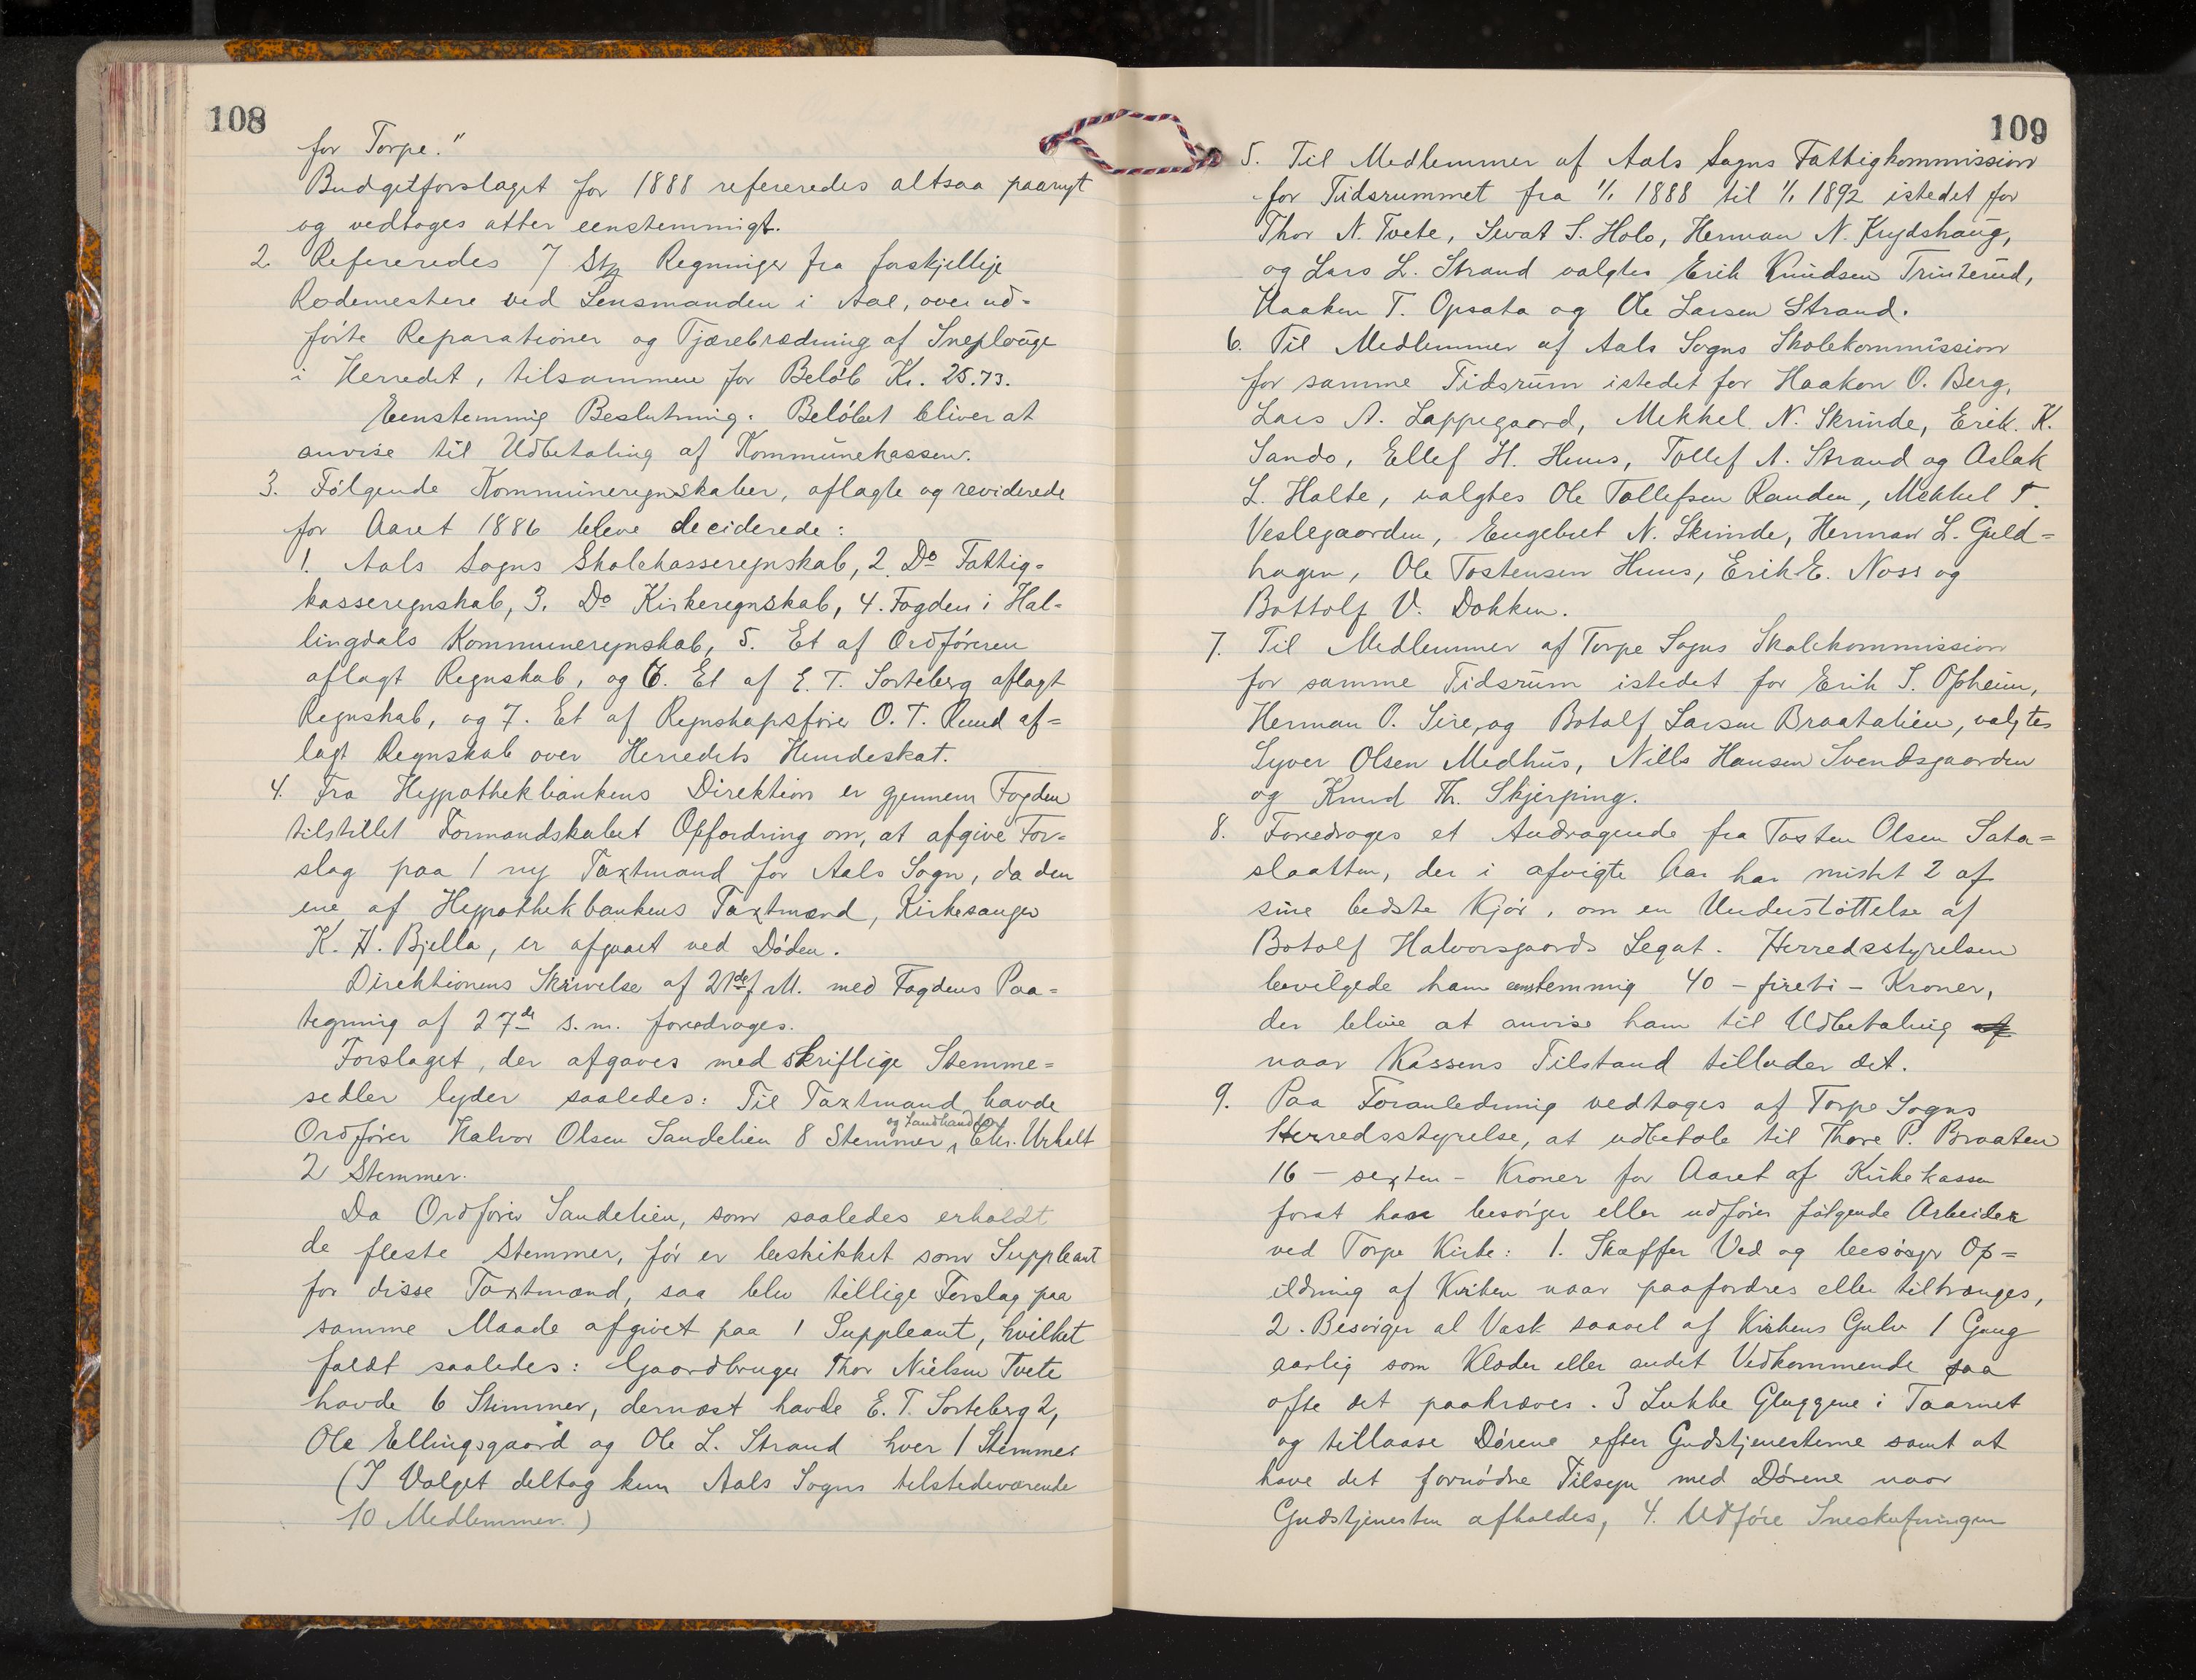 108
for Torpe."
Budgetforslaget for 1888 refereredes altsaa paanyt
og vedtoges atter eenstemmigt.
2. Refereredes 7 Stk Regninger fra forskjellije
Rodemestere ved Lensmanden i Aal, over ud-
förte Reparationer og Tjærebrædning af Sneplouge
i Herredet, tilsammen for Belöb Kr. 25.73.
Eenstemmig Beslutning. Belöbet bliver at
anvise til Udbetaling af Kommunekassen.
3. Fölgende Kommuneregnskaber, aflagte og reviderede
for Aaret 1886 bleve deciderede:
1. Aals Sogns Skolekasseregnskab, 2. Do Fattig-
kasseregnskab, 3. Do Kirkeregnskab, 4. Fogden i Hal-
lingdals Kommuneregnskab, 5. Et af Ordföreren
aflagt Regnskab, og 6. Et af E. T. Sorteberg aflagt
Regnskab, og 7. Et af Regnskapsförer O. T. Ruud af-
lagt Regnskab over Herredets Hundeskat.
4. Fra Hypothekbankens Direktion er gjennem Fogden
tilstillet Formandskabet Opfordring om, at afgive For-
slag paa 1 ny Taxtmand for Aals Sogn, da den
ene af Hypothekbankens Taxtmænd, Kirkesanger
K. H. Bjella, er afgaaet ved Döden.
Direktionens Skrivelse af 21de f. M. med Fogdens Paa-
tegning af 27de s.m. foredroges.
Forslaget, der afgaves med skriftlige Stemme-
sedler lyder saaledes: Til Taxtmand havde
Ordförer Halvor Olsen Sandelien 8 Stemmer, og Landhandler Chr. Urholt
2 Stemmer.
Da Ordförer Sandelien, som saaledes erholdt
de fleste Stemmer, för er beskikket som Suppleant
for disse Taxtmænd, saa blev tillige Forslag paa
samme Maade afgivet paa 1 Suppleant, hvilket
faldt saaledes: Gaardbruger Thor Nielsen Tvete
havde 6 Stemmer, dernæst havde E. T. Sorteberg 2,
Ole Ellingsgaard og Ole L. Strand hver 1 Stemmer
(I Valget deltog kun Aals Sogns tilstedeværende
10 Medlemmer.)
109
5. Til Medlemmer af Aals Sogns Fattigkommission
for Tidsrummet fra 1/1 1888 til 1/1 1892 istedet for
Thor N. Tvete, Sevat S. Holo, Herman N. Krydshaug,
og Lars L. Strand valgtes Erik Knudsen Trinterud,
Haaken T. Opsata og Ole Larsen Strand.
6. Til Medlemmer af Aals Sogns Skolekommission
for samme Tidsrum istedet for Haakon O. Berg,
Lars A. Lappegaard, Mekkel N. Skrinde, Erik K.
Sando, Ellef H. Huus, Tollef A. Strand og Aslak
L. Holte, valgtes Ole Tollefsen Randen, Mekkel T.
Veslegaarden, Engebret N. Skrinde, Herman L. Guld-
hagen, Ole Tostensen Huus, Erik E. Noss og
Bottolf V. Dokken.
7. Til Medlemmer af Torpe Sogns Skolekommission
for samme Tidsrum istedet for Erik S. Opheim,
Herman O. Sire, og Botolf Larsen Braatalien, valgtes
Syver Olsen Medhus, Nills Hansen Svendsgaarden
og Knud Th. Skjerping.
8. Foredroges et Andragende fra Tosten Olsen Sata-
slaatten, der i afvigte Aar har mistet 2 af
sine bedste Kjör, om en Understöttelse af
Botolf Halvorsgaards Legat. Herredsstyrelsen
bevilgede ham eenstemmig 40 - fireti - Kroner,
der blive at anvise ham til Udbetaling af
naar Kassens Tilstand tillader det.
9. Paa Foranledning vedtoges af Torpe Sogns
Herredsstyrelse, at udbetale til Thore P. Braaten
16 - sexten - Kroner for Aaret af Kirkekassen
forat han besörger eller udförer fölgende Arbeider
ved Torpe Kirke: 1. Skaffer Ved og besörger Op-
ildning af Kirken naar paafordres eller tiltrænges,
2. Besörger al Vask saavel af Kirkens Gulv 1 Gang
aarlig som Klæder eller andet Vedkommende saa
ofte det paakræves. 3 Lukke Gluggene i Taarnet
og tillaase Dörene efter Gudstjenesterne samt at
have det fornödne Tilsyn med Dörene naar
Gudstjenesten afholdes, 4. Udföre Sneskufningen